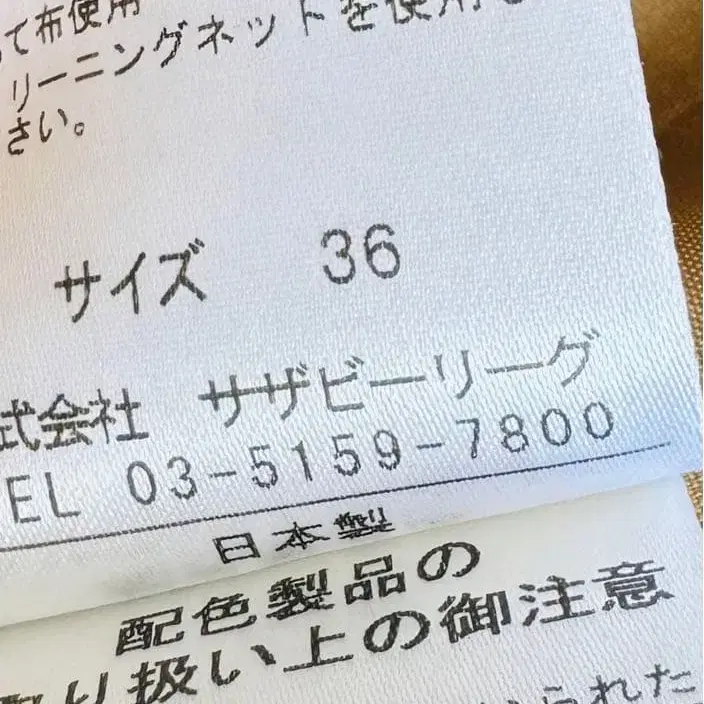 て布使用
リーニングネットを使用
さい。
サイズ 36
式会社 サザビーリーグ
EL 03-5159-7800
日本製
配色製品の
り扱い上の御注意
られた